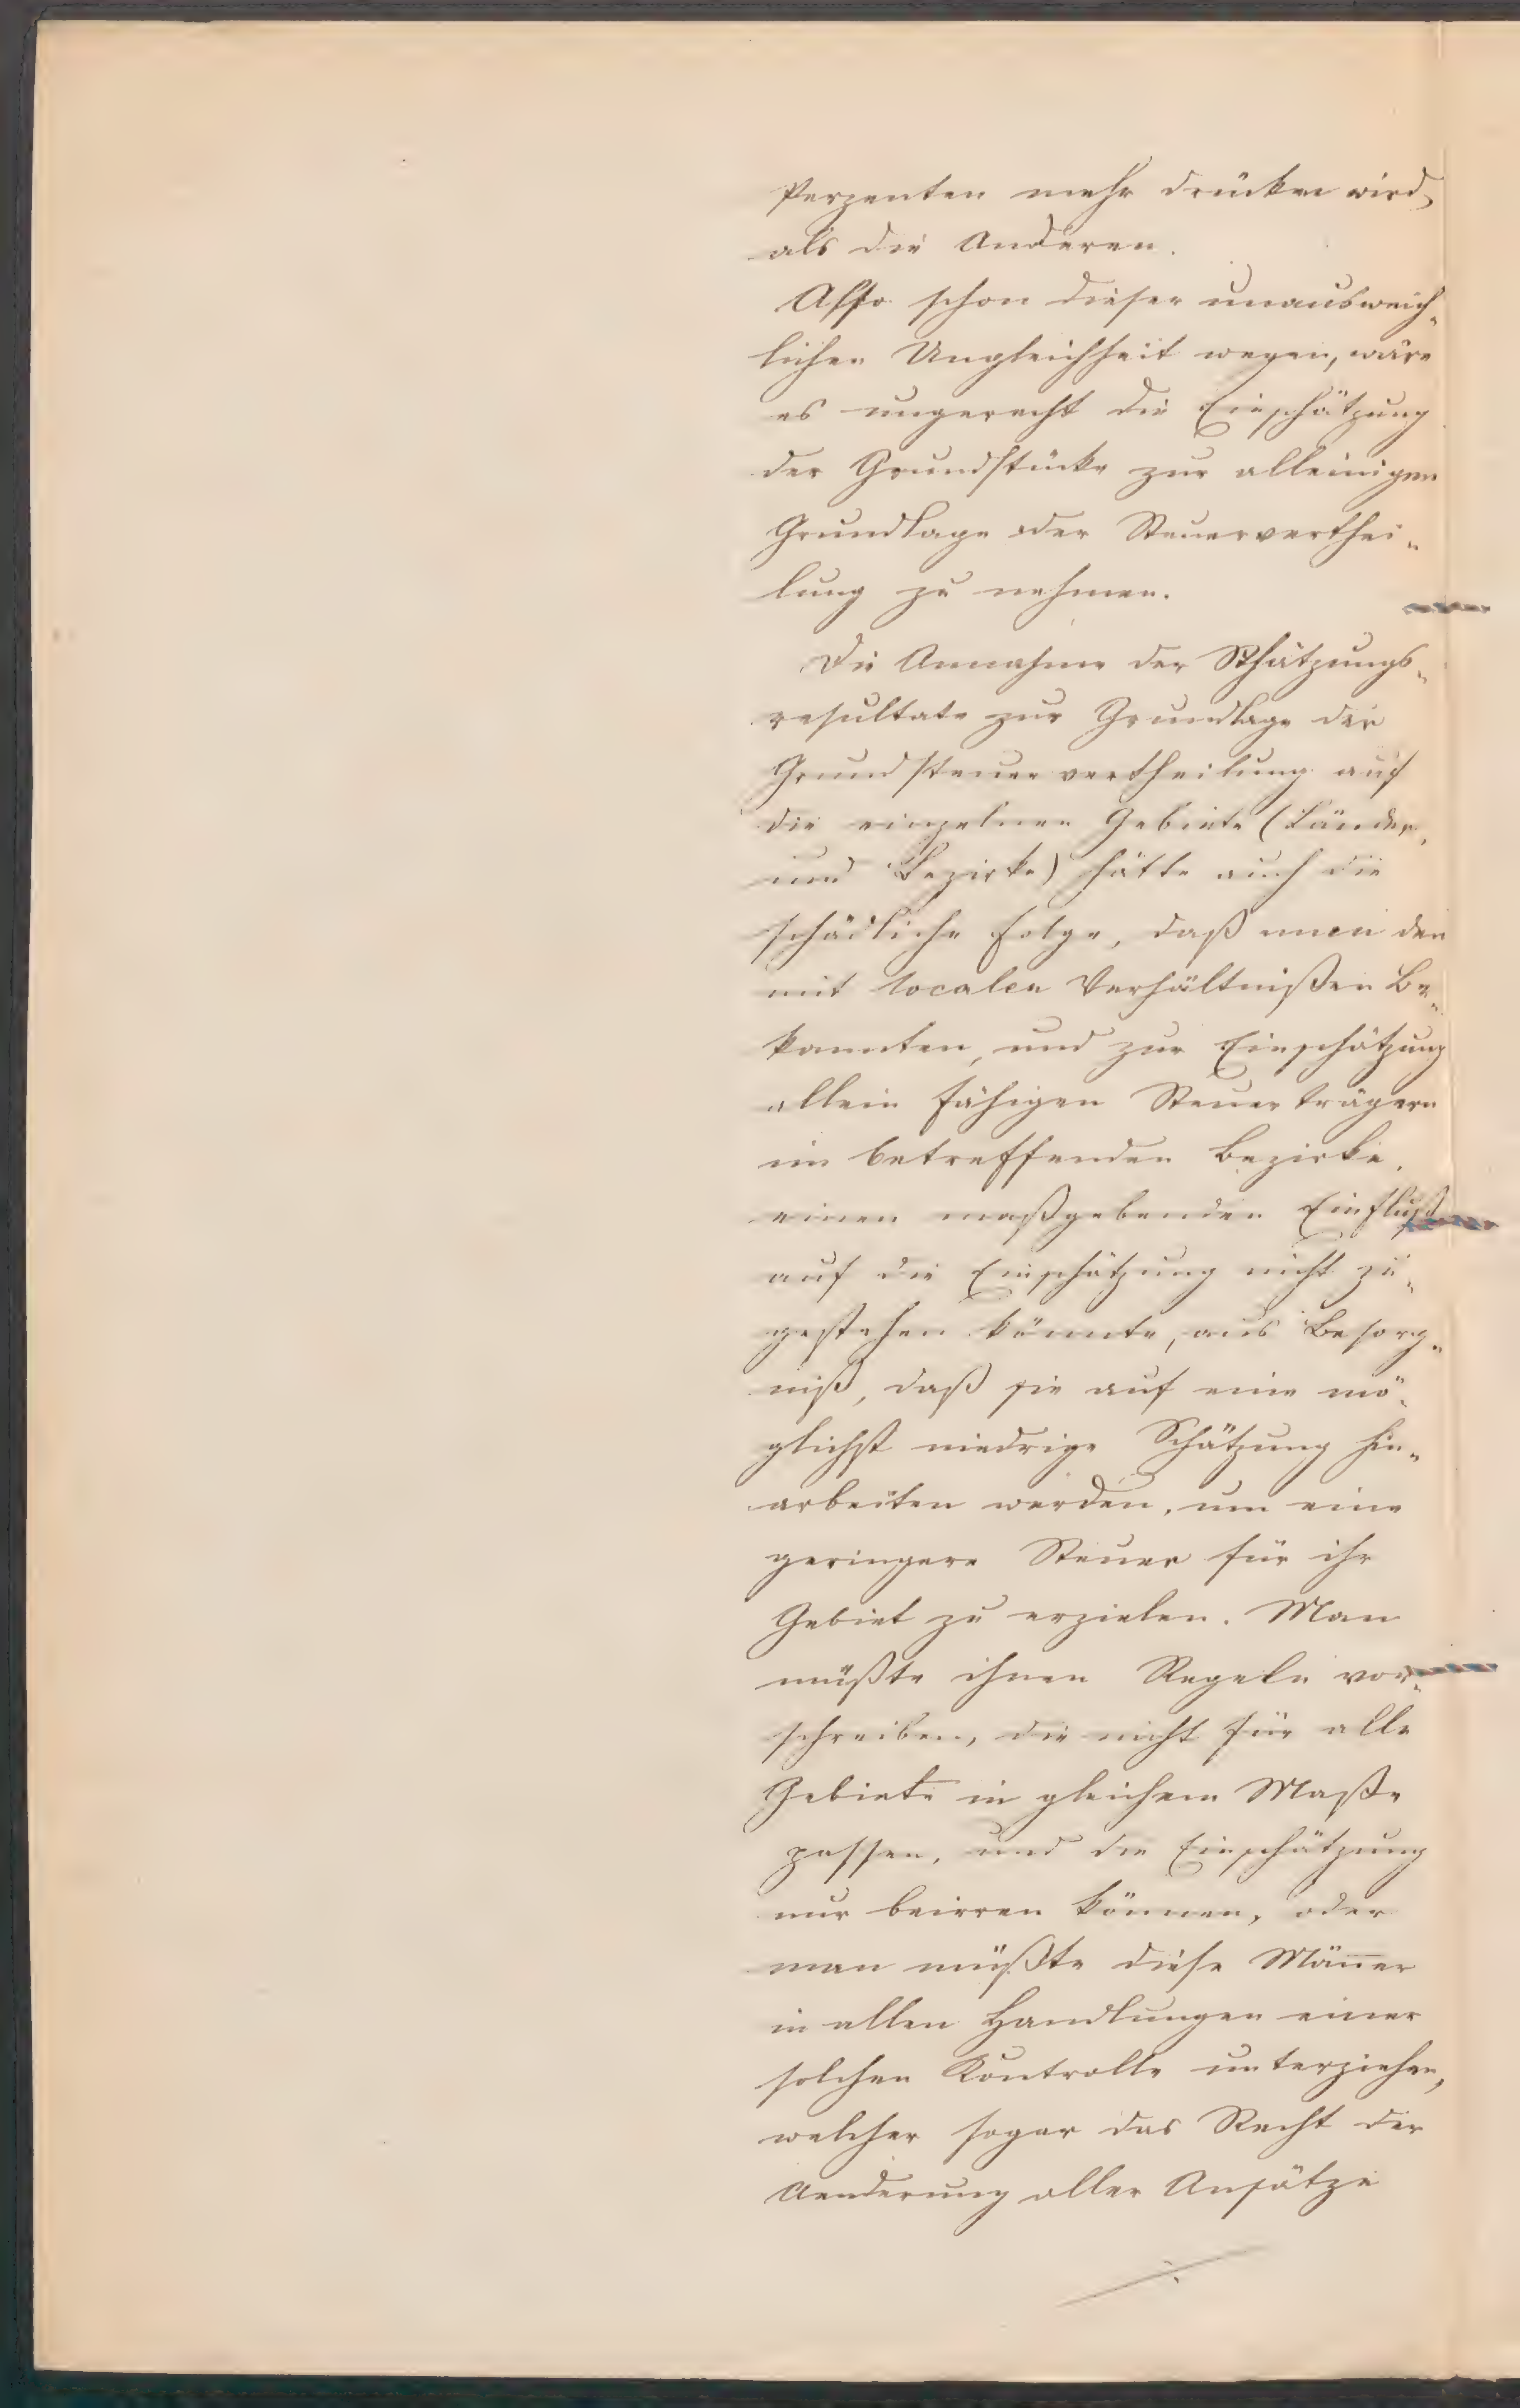 Perzenten mehr drücken wird,
als die Anderen.
Also schon dieser unausweich-
lichen Ungleichheit wegen, wäre
es ungerecht die Einschätzung
der Grundstücke zur alleinigen
Grundlage der Steuerverthei-
lung zu nehmen.
Die Annahme der Schätzungs-
resultate zur Grundlage der
Grundsteuervertheilung auf
die einzelnen Gebiete (Länder,
und Bezirke) hätte auch die
schädliche Folge, daß man den
mit localen Verhältnißen be-
kannten, und zur Einschätzung
allein fähigen Steuerträgern
im betreffenden Bezirke,
einen maßgebenden Einfluß
auf die Einschätzung nicht zu-
gestehen könnte, aus Besorg-
niß, daß sie auf eine mö-
glichst niedrige Schätzung hin-
arbeiten werden, um eine
geringere Steuer für ihr
Gebiet zu erzielen. Man
müßte ihnen Regeln vor-
schreiben, die nicht für alle
Gebiete in gleichem Maße
passen, und die Einschätzung
nur beirren können, oder
man müßte diese Män̄er
in allen Handlungen einer
solchen Kontrolle unterziehen,
welcher sogar das Recht der
Aenderung aller Ansätze